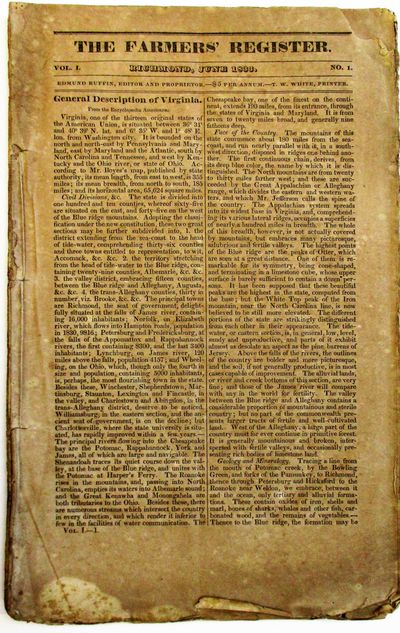 THE FARMERS' REGISTER.
VOL. I. RICHMOND, JUNE 1833. NO. 1.
EDMUND RUFFIN, EDITOR AND PROPRIETOR.—$5 PER ANNUM.—T. W. WHITE, PRINTER.
General Description of Virginia.
From the Encyclopædia Americana.
Virginia, one of the thirteen original states of
the American Union, is situated between 36° 31'
and 40° 39' N. lat. and 6° 35' W. and 1° 48' E.
lon. from Washington city. It is bounded on the
north and north-east by Pennsylvania and Mary-
land, east by Maryland and the Atlantic, south by
North Carolina and Tennessee, and west by Ken-
tucky and the Ohio river, or state of Ohio. Ac-
cording to Mr. Boyer's map, published by state
authority, its mean length, from east to west, is 355
miles; its mean breadth, from north to south, 185
miles; and its horizontal area, 65,624 square miles.
Civil Divisions, &c. The state is divided into
one hundred and ten counties, whereof sixty-five
are situated on the east, and forty-five on the west
of the Blue ridge mountains. Adopting the classi-
fication under the new constitution, these two great
sections may be further subdivided into, 1. the
district extending from the sea-coast to the head
of tide-water, comprehending thirty-six counties
and three towns entitled to representation, to wit,
Accomack, &c. &c. 2. the territory stretching
from the head of tide-water to the Blue ridge, con-
taining twenty-nine counties, Albemarle, &c. &c.
3. the valley district, embracing fifteen counties,
between the Blue ridge and Alleghany, Augusta,
&c. &c. 4. the trans-Alleghany counties, thirty in
number, viz. Brooke, &c. &c. The principal towns
are Richmond, the seat of government, delight-
fully situated at the falls of James river, contain-
ing 16,000 inhabitants; Norfolk, on Elizabeth
river, which flows into Hampton roads, population
in 1830, 9816; Petersburg and Fredericksburg, at
the falls of the Appomattox and Rappahannock
rivers, the first containing 8300, and the last 3400
inhabitants; Lynchburg, on James river, 120
miles above the falls, population 4157; and Wheel-
ing, on the Ohio, which, though only the fourth in
size and population, containing 5000 inhabitants,
is, perhaps, the most flourishing town in the state.
Besides these, Winchester, Shepherdstown, Mar-
tinsburg, Staunton, Lexington and Fincastle, in
the valley, and Charlestown and Abingdon, in the
trans-Alleghany district, deserve to be noticed.
Williamsburg, in the eastern section, and the an-
cient seat of government, is on the decline; but
Charlottesville, where the state university is situ-
ated, has rapidly improved within a few years.—
The principal rivers flowing into the Chesapeake
bay are the Potomac, Rappahannock, York and
James, all of which are large and navigable. The
Shenandoah traces its rapid course down the val-
ley, at the base of the Blue ridge, and unites with
the Potomac at Harper's Ferry. The Roanoke
rises in the mountains, and, passing into North
Carolina, empties its waters into Albemarle sound;
and the Great Kenawha and Monongahela are
both tributaries to the Ohio. Besides these, there
are numerous streams which intersect the country
in every direction, and which render it inferior to
few in the facilities of water communication. The
VOL. I.—1.
Chesapeake bay, one of the finest on the conti-
nent, extends 190 miles, from its entrance, through
the states of Virginia and Maryland. It is from
seven to twenty miles broad, and generally nine
fathoms deep.
Face of the Country. The mountains of this
state commence about 180 miles from the sea-
coast, and run nearly parallel with it, in a south-
west direction, disposed in ridges one behind ano-
ther. The first continuous chain, derives, from
its deep blue color, the name by which it is dis-
tinguished. The North mountains are from twenty
to thirty miles further west; and these are suc-
ceeded by the Great Appalachian or Alleghany
range, which divides the eastern and western wa-
ters, and which Mr. Jefferson calls the spine of
the country. The Appalachian system spreads
into its widest base in Virginia, and, comprehend-
ing its various lateral ridges, occupies a superficies
of nearly a hundred miles in breadth. The whole
of this breadth, however, is not actually covered
by mountains, but embraces many picturesque,
salubrious and fertile valleys. The highest points
of the Blue ridge are the peaks of Otter, which
are seen at a great distance. One of them is re-
markable for its symmetry, being cone-shaped,
and terminating in a limestone cube, whose upper
surface is barely sufficient to contain a dozen per-
sons. It has been supposed that these beautiful
peaks are the highest in the state, computed from
the base; but the White Top peak of the Iron
mountain, near the North Carolina line, is now
believed to be still more elevated. The different
portions of the state are strikingly distinguished
from each other in their appearance. The tide-
water, or eastern section, is, in general, low, level,
sandy and unproductive, and parts of it exhibit
almost as desolate an aspect as the pine barrens of
Jersey. Above the falls of the rivers, the outlines
of the country are bolder and more picturesque,
and the soil, if not generally productive, is in most
cases capable of improvement. The alluvial lands,
or river and creek bottoms of this section, are very
fine; and those of the James river will compare
with any in the world for fertility. The valley
between the Blue ridge and Alleghany contains a
considerable proportion of mountainous and sterile
country; but no part of the commonwealth pre-
sents larger tracts of fertile and well-cultivated
land. West of the Alleghany, a large part of the
country must for ever continue in primitive forest.
It is generally mountainous and broken, inter-
spersed with fertile valleys, and occasionally pre-
senting rich bodies of limestone land.
Geology and Mineralogy. Tracing a line from
the mouth of Potomac creek, by the Bowling
Green, and forks of the Pamunkey, to Richmond,
thence through Petersburg and Hicksford to the
Roanoke near Weldon, we embrace, between it
and the ocean, only tertiary and alluvial forma-
tions. These contain oxides of iron, shells and
marl, bones of sharks, whales and other fish, car-
bonated wood, and the remains of vegetables.—
Thence to the Blue ridge, the formation may be